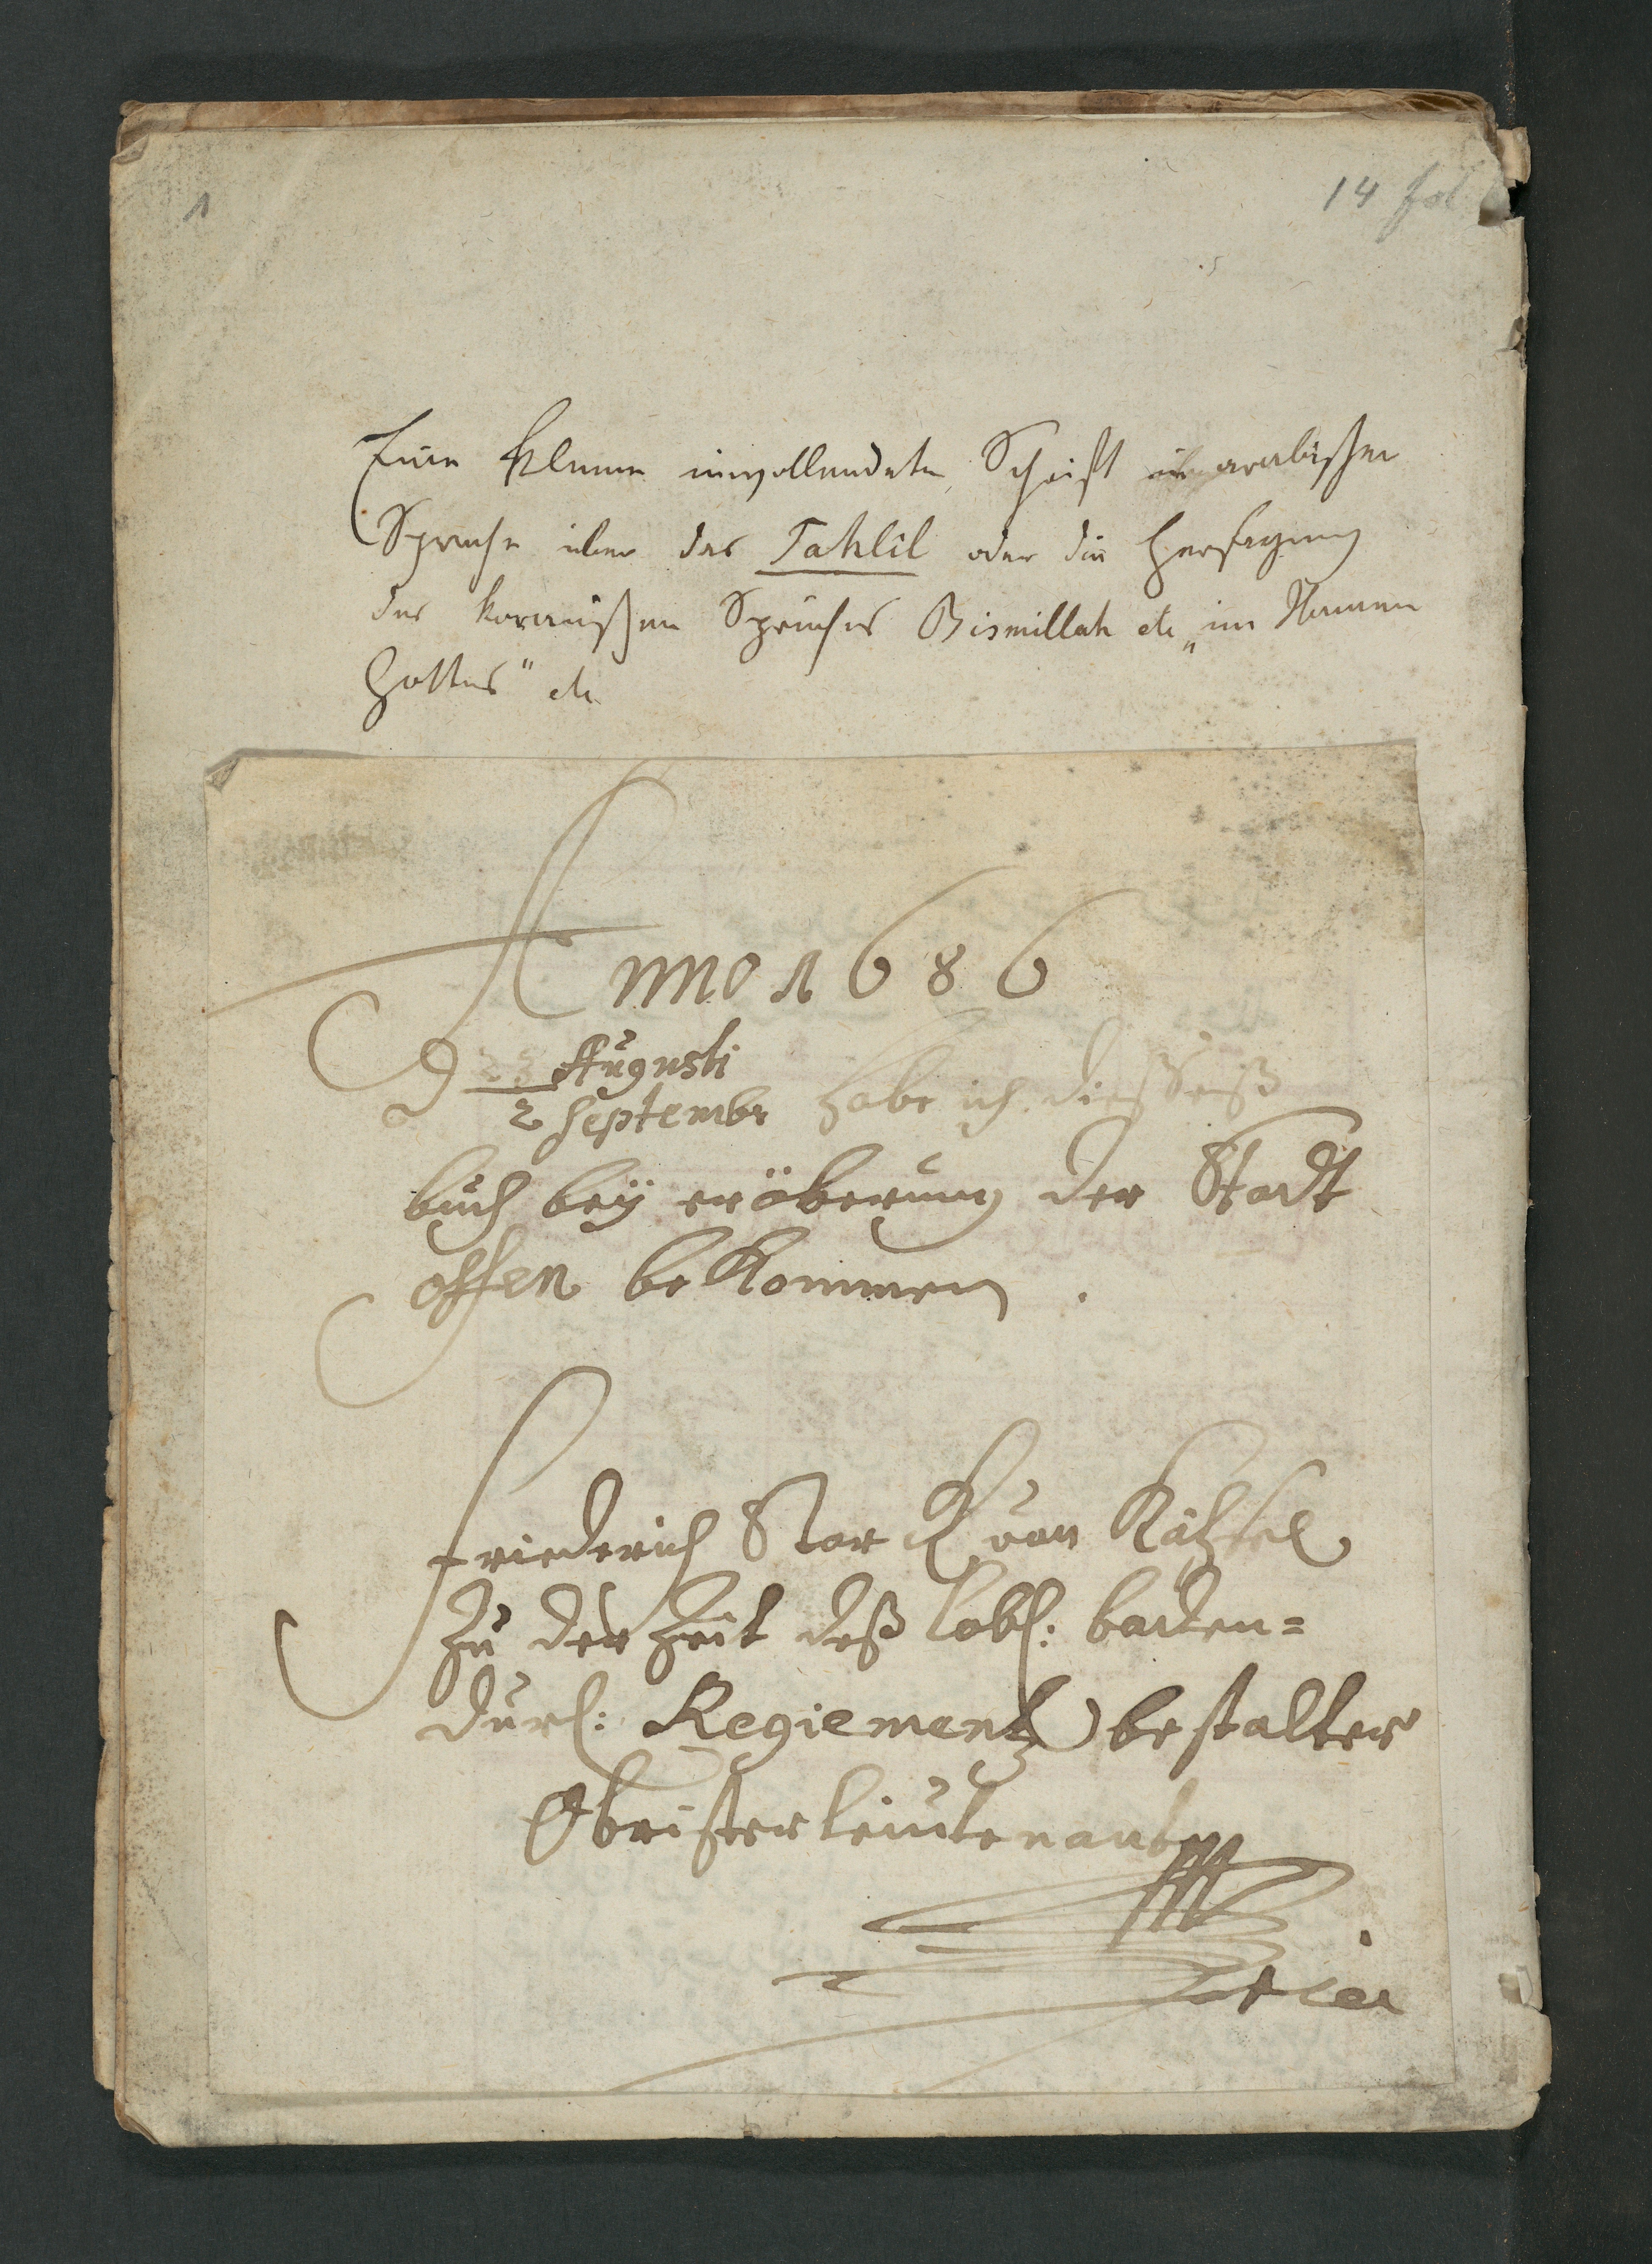 1
14 fol
Eine kleine unvollendete Schrift in arabischer
Sprache über das Tahlil oder die Hersagung
des koranischen Spruches Bismillah etc „im Namen
Gottes" etc
Anno 1686
D 23 Augusti
2 Septembr habe ich dießes
buch beÿ eröberung der Stadt
offen bekommen.
Friederich Stark von
Zu der Zeit deß löbl: baden=
durl: Regiementz bestalter
Obristerleutenant